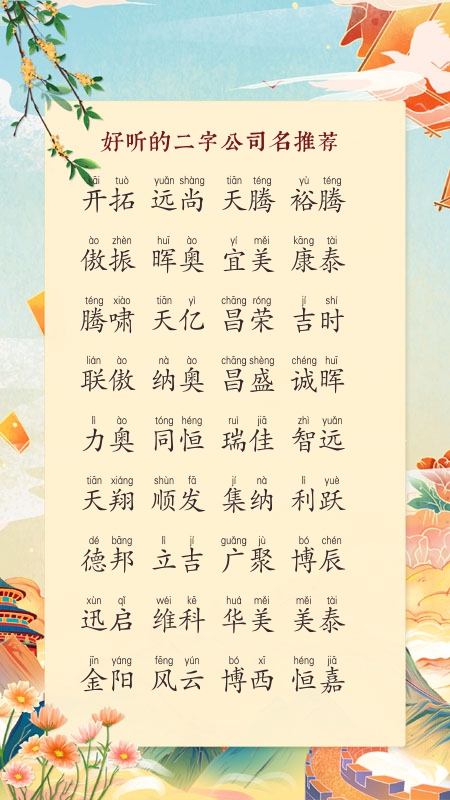 好听的二字公司名推荐
kāi tuò yuǎn shàng tiān téng yù téng
开拓 远尚 天腾 裕腾
ào zhèn huī ào yí měi kāng tài
傲振 晖奥 宜美 康泰
téng xiào tiān yì chāng róng jí shí
腾啸 天亿 昌荣 吉时
lián ào nà ào chāng shèng chéng huī
联傲 纳奥 昌盛 诚晖
lì ào tóng héng ruì jiā zhì yuǎn
力奥 同恒 瑞佳 智远
tiān xiáng shùn fā jí nà lì yuè
天翔 顺发 集纳 利跃
dé bāng lì jí guǎng jù bó chén
德邦 立吉 广聚 博辰
xùn qǐ wéi kē huá měi měi tài
迅启 维科 华美 美泰
jīn yáng fēng yún bó xī héng jiā
金阳 风云 博西 恒嘉